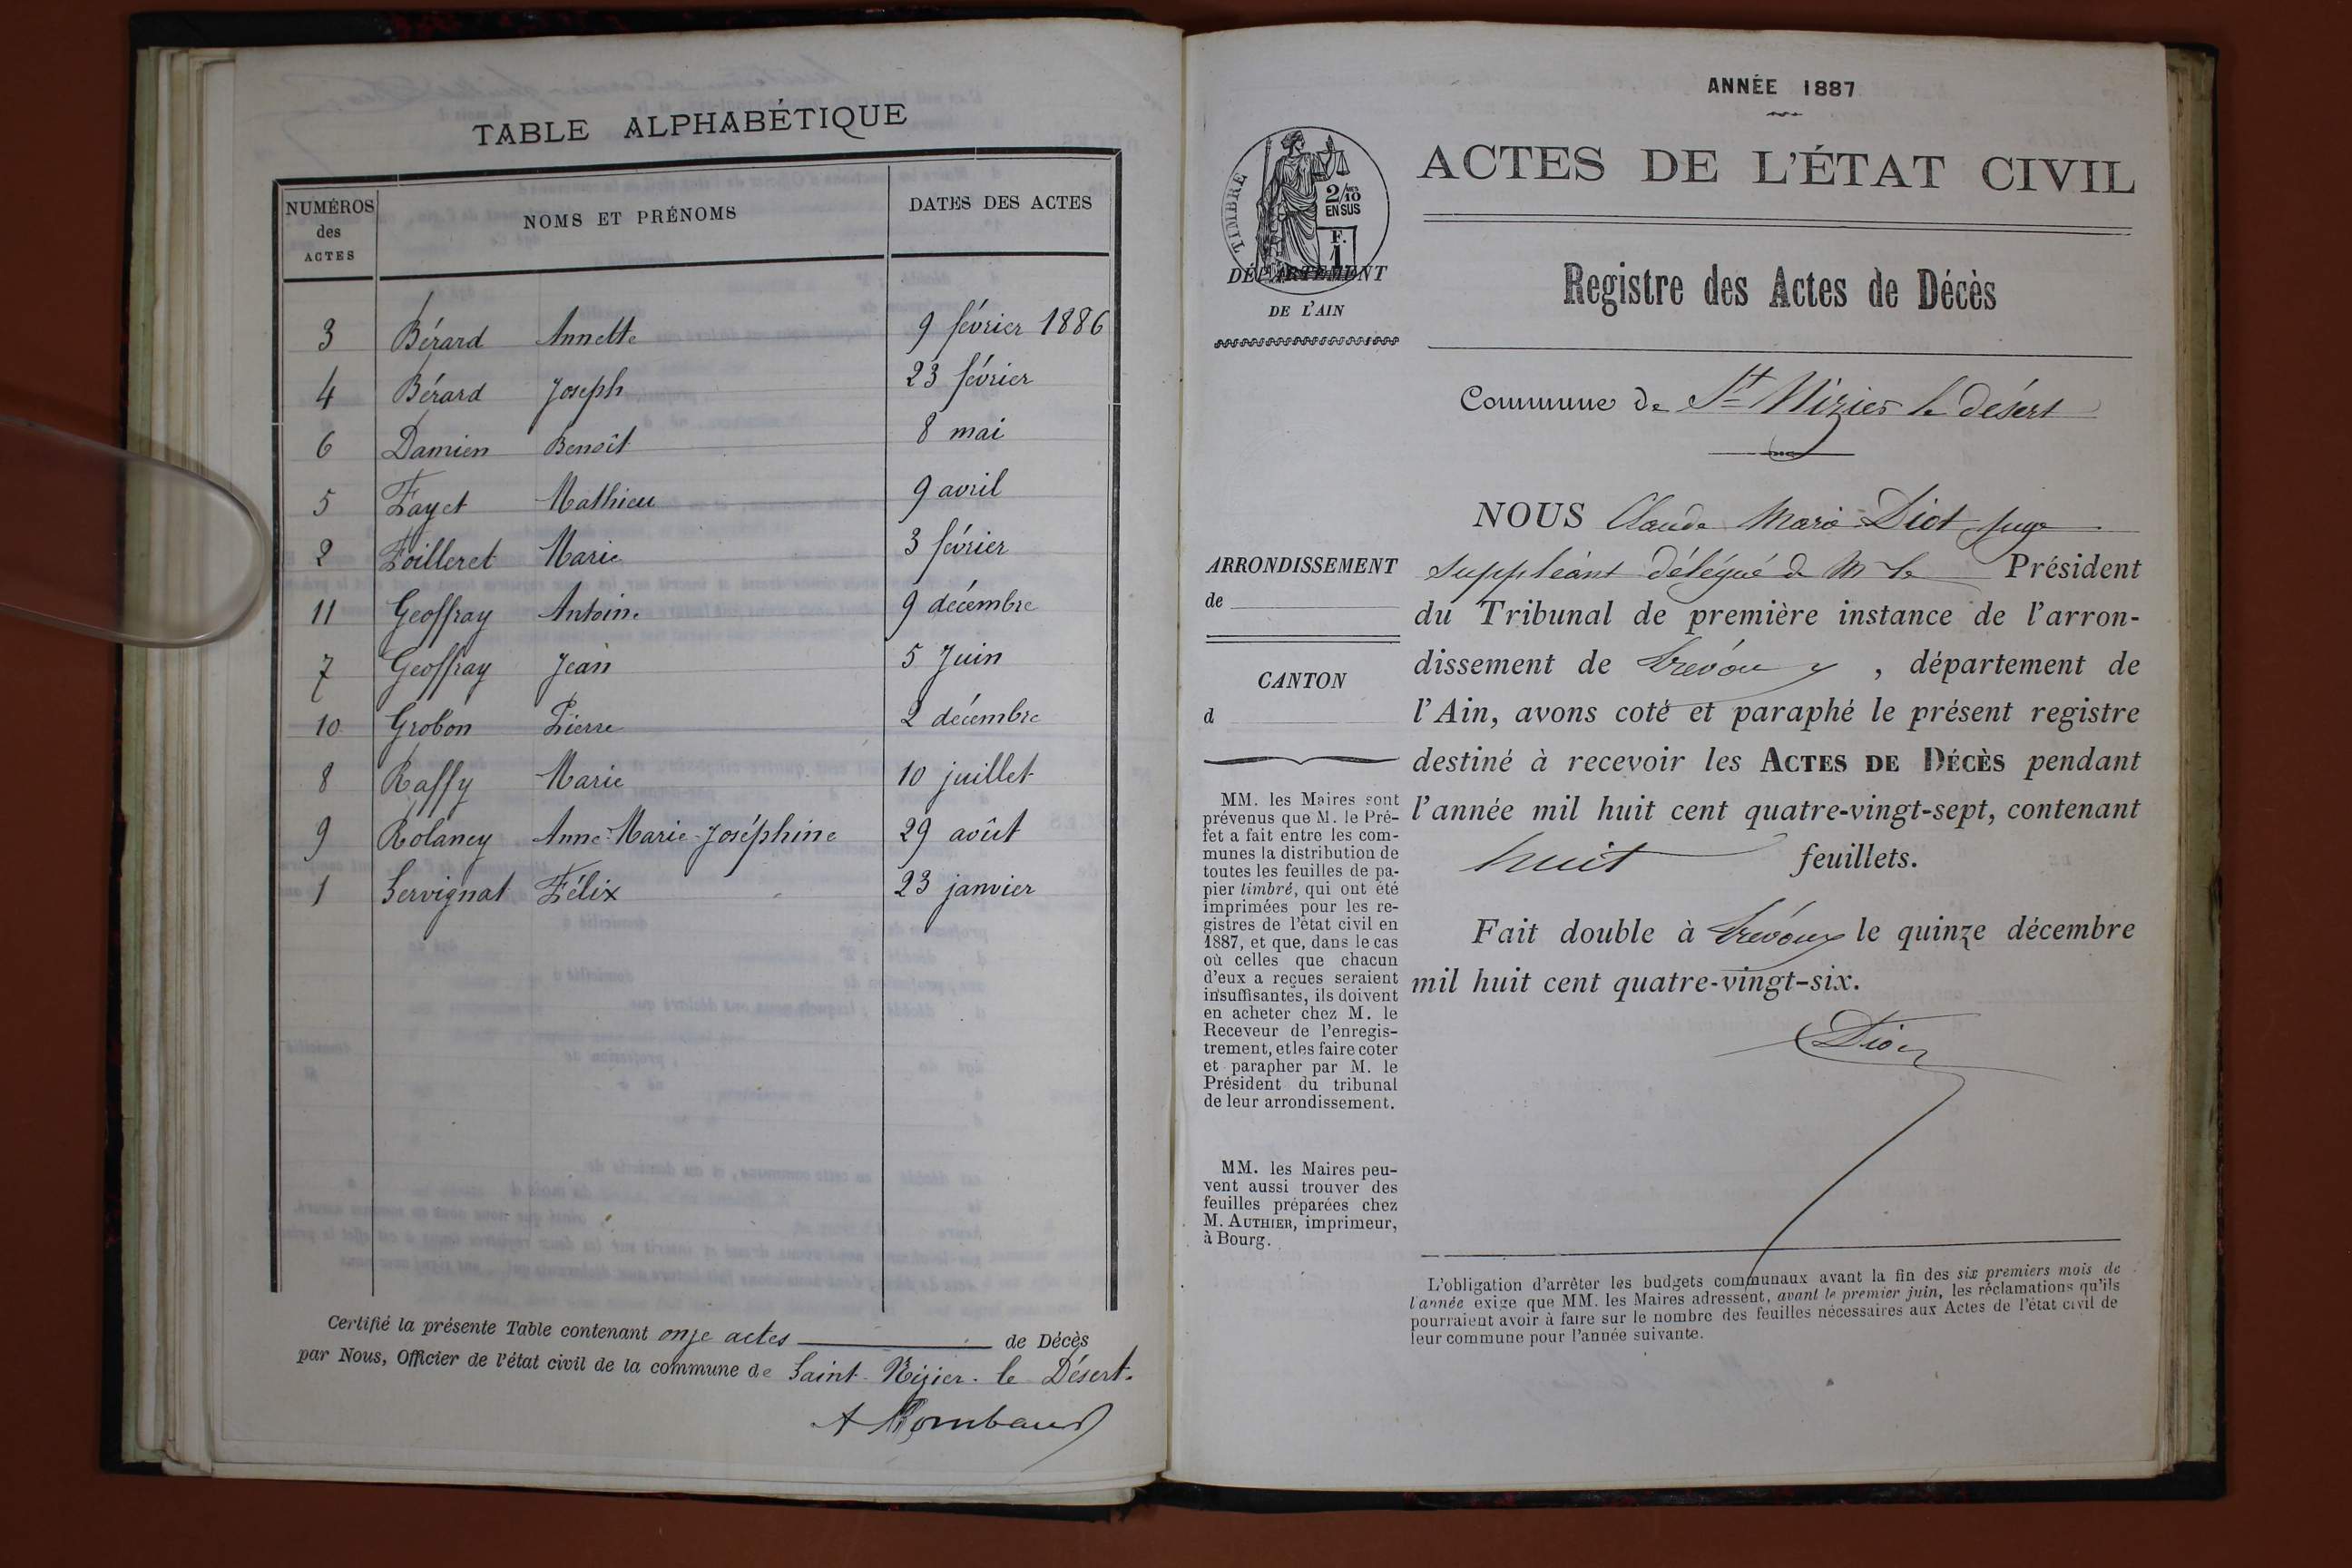 TABLE ALPHABÉTIQUE
NUMÉROS des ACTES NOMS ET PRÉNOMS DATES DES ACTES
3 Bérard Annette 9 février 1886
4 Bérard Joseph 23 février
6 Damien Benoît 8 mai
5 Fayet Mathieu 9 avril
2 Foilleret Marie 3 février
11 Geoffray Antoine 9 décembre
7 Geoffray Jean 5 Juin
10 Grobon Pierre 2 décembre
8 Raffy Marie 10 juillet
9 Rolancy Anne-Marie-Joséphine 29 août
1 Servignat Félix 23 janvier
Certifié la présente Table contenant onze actes de Décès
par Nous, Officier de l'état civil de la commune de Saint-Nizier-le Désert.
ANNÉE 1887
TIMBRE
2/10 EN SUS
F. 1
DÉPARTEMENT
DE L'AIN
ACTES DE L'ÉTAT CIVIL
Registre des Actes de Décès
Commune de St Nizier le désert
ARRONDISSEMENT
de
CANTON
d
MM. les Maires sont
prévenus que M. le Pré-
fet a fait entre les com-
munes la distribution de
toutes les feuilles de pa-
pier timbré, qui ont été
imprimées pour les re-
gistres de l'état civil en
1887, et que, dans le cas
où celles que chacun
d'eux a reçues seraient
insuffisantes, ils doivent
en acheter chez M. le
Receveur de l'enregis-
trement, et les faire coter
et parapher par M. le
Président du tribunal
de leur arrondissement.
MM. les Maires peu-
vent aussi trouver des
feuilles préparées chez
M. AUTHIER, imprimeur,
à Bourg.
NOUS Claude Marie Diot juge
suppléant délégué de M le Président
du Tribunal de première instance de l'arron-
dissement de Trévoux, département de
l'Ain, avons coté et paraphé le présent registre
destiné à recevoir les ACTES DE DÉCÈS pendant
l'année mil huit cent quatre-vingt-sept, contenant
huit feuillets.
Fait double à Trévoux le quinze décembre
mil huit cent quatre-vingt-six.
Diot
L'obligation d'arrêter les budgets communaux avant la fin des six premiers mois de
l'année exige que MM. les Maires adressent, avant le premier juin, les réclamations qu'ils
pourraient avoir à faire sur le nombre des feuilles nécessaires aux Actes de l'état civil de
leur commune pour l'année suivante.